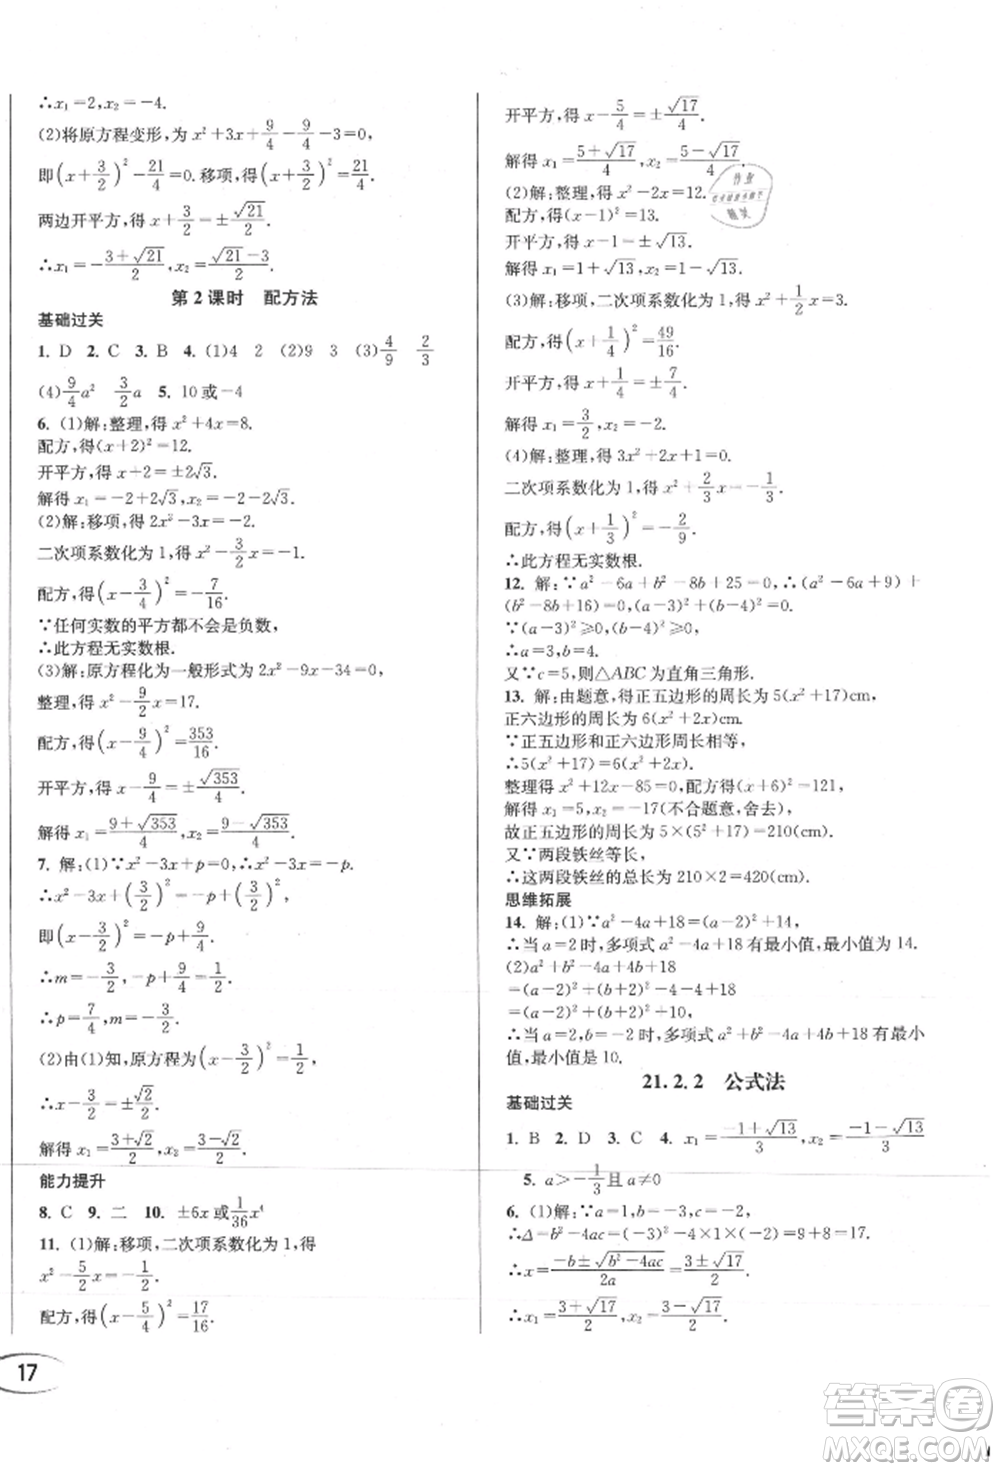 ∴x₁=2,x₂=-4.
(2)将原方程变形,为 x²+3x+9/4-9/4-3=0,
即(x+3/2)²-21/4=0.移项,得(x+3/2)²=21/4.
两边开平方,得 x+3/2=±√21/2.
∴x₁=-(3+√21)/2,x₂=(√21-3)/2.
第2课时 配方法
基础过关
1. D 2. C 3. B 4. (1)4 2 (2)9 3 (3)4/9 2/3
(4)9/4a² 3/2a 5. 10或-4
6. (1)解:整理,得 x²+4x=8.
配方,得(x+2)²=12.
开平方,得 x+2=±2√3.
解得 x₁=-2+2√3,x₂=-2-2√3.
(2)解:移项,得 2x²-3x=-2.
二次项系数化为1,得 x²-3/2x=-1.
配方,得(x-3/4)²=-7/16.
∵任何实数的平方都不会是负数,
∴此方程无实数根.
(3)解:原方程化为一般形式为 2x²-9x-34=0,
整理,得 x²-9/2x=17.
配方,得(x-9/4)²=353/16.
开平方,得 x-9/4=±√353/4.
解得 x₁=(9+√353)/4,x₂=(9-√353)/4.
7. 解:(1)∵x²-3x+p=0,∴x²-3x=-p.
∴x²-3x+(3/2)²=-p+(3/2)².
即(x-3/2)²=-p+9/4.
∴m=-3/2,-p+9/4=1/2.
∴p=7/4,m=-3/2.
(2)由(1)知,原方程为(x-3/2)²=1/2,
∴x-3/2=±√2/2.
解得 x₁=(3+√2)/2,x₂=(3-√2)/2.
能力提升
8. C 9. 二 10. ±6x或1/36x⁴
11. (1)解:移项,二次项系数化为1,得
x²-5/2x=-1/2.
配方,得(x-5/4)²=17/16.
17
开平方,得 x-5/4=±√17/4.
解得 x₁=(5+√17)/4,x₂=(5-√17)/4.
(2)解:整理,得 x²-2x=12.
配方,得(x-1)²=13.
开平方,得 x-1=±√13.
解得 x₁=1+√13,x₂=1-√13.
(3)解:移项,二次项系数化为1,得 x²+1/2x=3.
配方,得(x+1/4)²=49/16.
开平方,得 x+1/4=±7/4.
解得 x₁=3/2,x₂=-2.
(4)解:整理,得 3x²+2x+1=0.
二次项系数化为1,得 x²+2/3x=-1/3.
配方,得(x+1/3)²=-2/9.
∴此方程无实数根.
12. 解:∵a²-6a+b²-8b+25=0,∴(a²-6a+9)+
(b²-8b+16)=0.∴(a-3)²+(b-4)²=0.
∵(a-3)²≥0,(b-4)²≥0.
∴a=3,b=4.
又∵c=5,则△ABC为直角三角形.
13. 解:由题意,得正五边形的周长为5(x²+17)cm,
正六边形的周长为6(x²+2x)cm.
∵正五边形和正六边形周长相等,
∴5(x²+17)=6(x²+2x).
整理得 x²+12x-85=0,配方得(x+6)²=121,
解得 x₁=5,x₂=-17(不合题意,舍去),
故正五边形的周长为 5×(5²+17)=210(cm).
又∵两段铁丝等长,
∴这两段铁丝的总长为 210×2=420(cm).
思维拓展
14. 解:(1)∵a²-4a+18=(a-2)²+14,
∴当a=2时,多项式a²-4a+18有最小值,最小值为14.
(2)a²+b²-4a+4b+18
=(a-2)²+(b+2)²-4-4+18
=(a-2)²+(b+2)²+10,
∴当a=2,b=-2时,多项式a²+b²-4a+4b+18有最小
值,最小值是10.
21.2.2 公式法
基础过关
1. B 2. D 3. C 4. x₁=(-1+√13)/3,x₂=(-1-√13)/3
5. a>-1/3且a≠0
6. (1)解:∵a=1,b=-3,c=-2,
∴Δ=b²-4ac=(-3)²-4×1×(-2)=9+8=17.
∴x=(-b±√(b²-4ac))/2a=(3±√17)/2.
∴x₁=(3+√17)/2,x₂=(3-√17)/2.
作业
精灵
答案圈
MXQE.COM